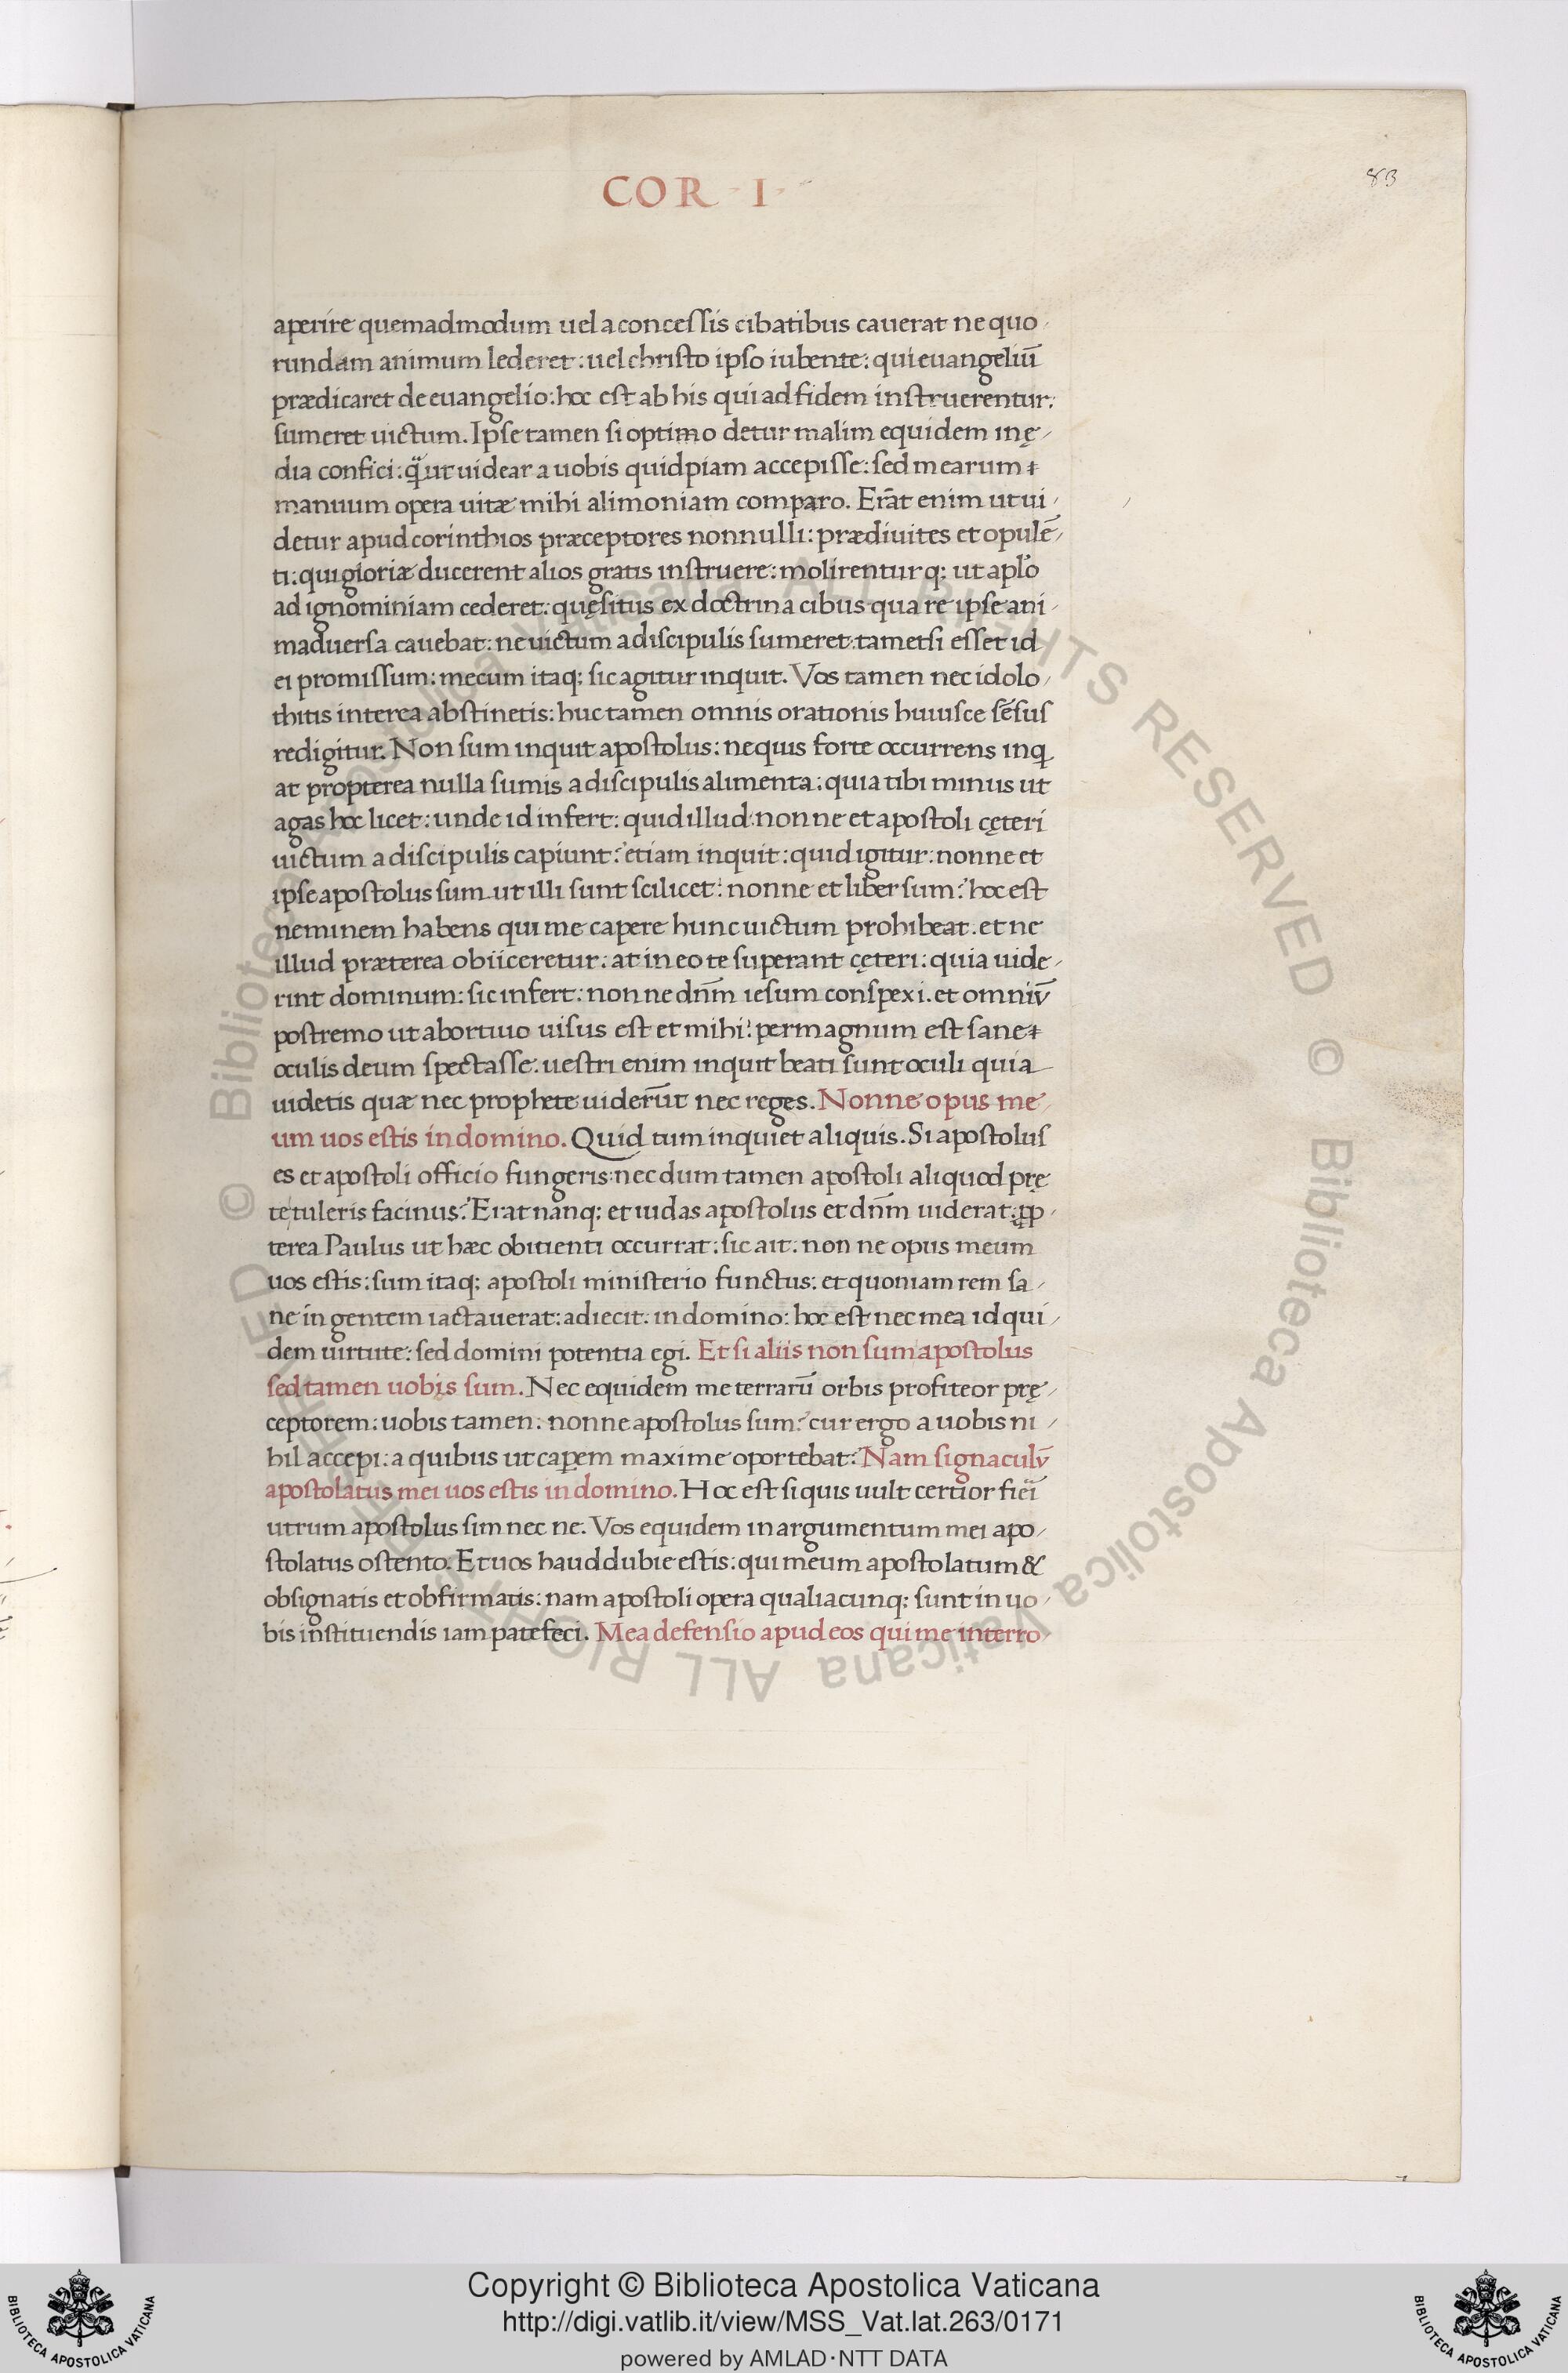 COR · I ·
83
aperire quemadmodum uel a concessis cibatibus cauerat ne quo
rundam animum lederet: uel christo ipso iubente: qui euangeliū
prædicaret de euangelio: hoc est ab his qui ad fidem instruerentur:
sumeret uictum. Ipse tamen si optimo detur malim equidem inę
dia confici: q̄ ut uidear a uobis quidpiam accepisse: sed mearum
manuum opera uitæ mihi alimoniam comparo. Erāt enim ut ui
detur apud corinthios præceptores nonnulli: prædiuites et opulē
ti: qui gloriæ ducerent alios gratis instruere: molirentur q; ut aplō
ad ignominiam cederet: quęsitus ex doctrina cibus qua re ipse ani
maduersa cauebat: ne uictum a discipulis sumeret: tametsi esset id
ei promissum: mecum itaq; sic agitur inquit. Vos tamen nec idolo
thitis interea abstinetis: huc tamen omnis orationis huiusce sēsus
redigitur. Non sum inquit apostolus: nequis forte occurrens inq
at propterea nulla sumis a discipulis alimenta: quia tibi minus ut
agas hoc licet: unde id infert: quid illud: non ne et apostoli cęteri
uictum a discipulis capiunt? etiam inquit: quid igitur: nonne et
ipse apostolus sum ut illi sunt scilicet: nonne et liber sum? hoc est
neminem habens qui me capere hunc uictum prohibeat. et ne
illud præterea obiiceretur: at in eo te superant cęteri: quia uide
rint dominum: sic infert: nonne dn̄m iesum conspexi. et omniū
postremo ut abortiuo uisus est et mihi: permagnum est sane
oculis deum spectasse: uestri enim inquit beati sunt oculi quia
uidetis quæ nec prophete uiderūt nec reges. Nonne opus me
um uos estis in domino. Quid tum inquiet aliquis. Si apostolus
es et apostoli officio fungeris: nec dum tamen apostoli aliquod prę
te tuleris facinus? Erat nanq; et iudas apostolus et dn̄m uiderat: ꝓp
terea Paulus ut hæc obitienti occurrat: sic ait: non ne opus meum
uos estis: sum itaq; apostoli ministerio functus: et quoniam rem sa
ne ingentem iactauerat: adiecit: in domino: hoc est nec mea id qui
dem uirtute: sed domini potentia egi. Et si aliis non sum apostolus
sed tamen uobis sum. Nec equidem me terrarū orbis profiteor prę
ceptorem: uobis tamen: nonne apostolus sum? cur ergo a uobis ni
hil accepi: a quibus ut caꝑem maxime oportebat? Nam signaculū
apostolatus mei uos estis in domino. Hoc est si quis uult certior fieī
utrum apostolus sim nec ne. Vos equidem in argumentum mei apo
stolatus ostento. Et uos haud dubie estis: qui meum apostolatum &
obsignatis et obfirmatis: nam apostoli opera qualiacunq; sunt in uo
bis instituendis iam patefeci. Mea defensio apud eos qui me interro
Copyright © Biblioteca Apostolica Vaticana
http://digi.vatlib.it/view/MSS_Vat.lat.263/0171
powered by AMLAD·NTT DATA
BIBLIOTECA APOSTOLICA VATICANA
BIBLIOTECA APOSTOLICA VATICANA
© Biblioteca Apostolica Vaticana ALL RIGHTS RESERVED
© Biblioteca Apostolica Vaticana ALL RIGHTS RESERVED